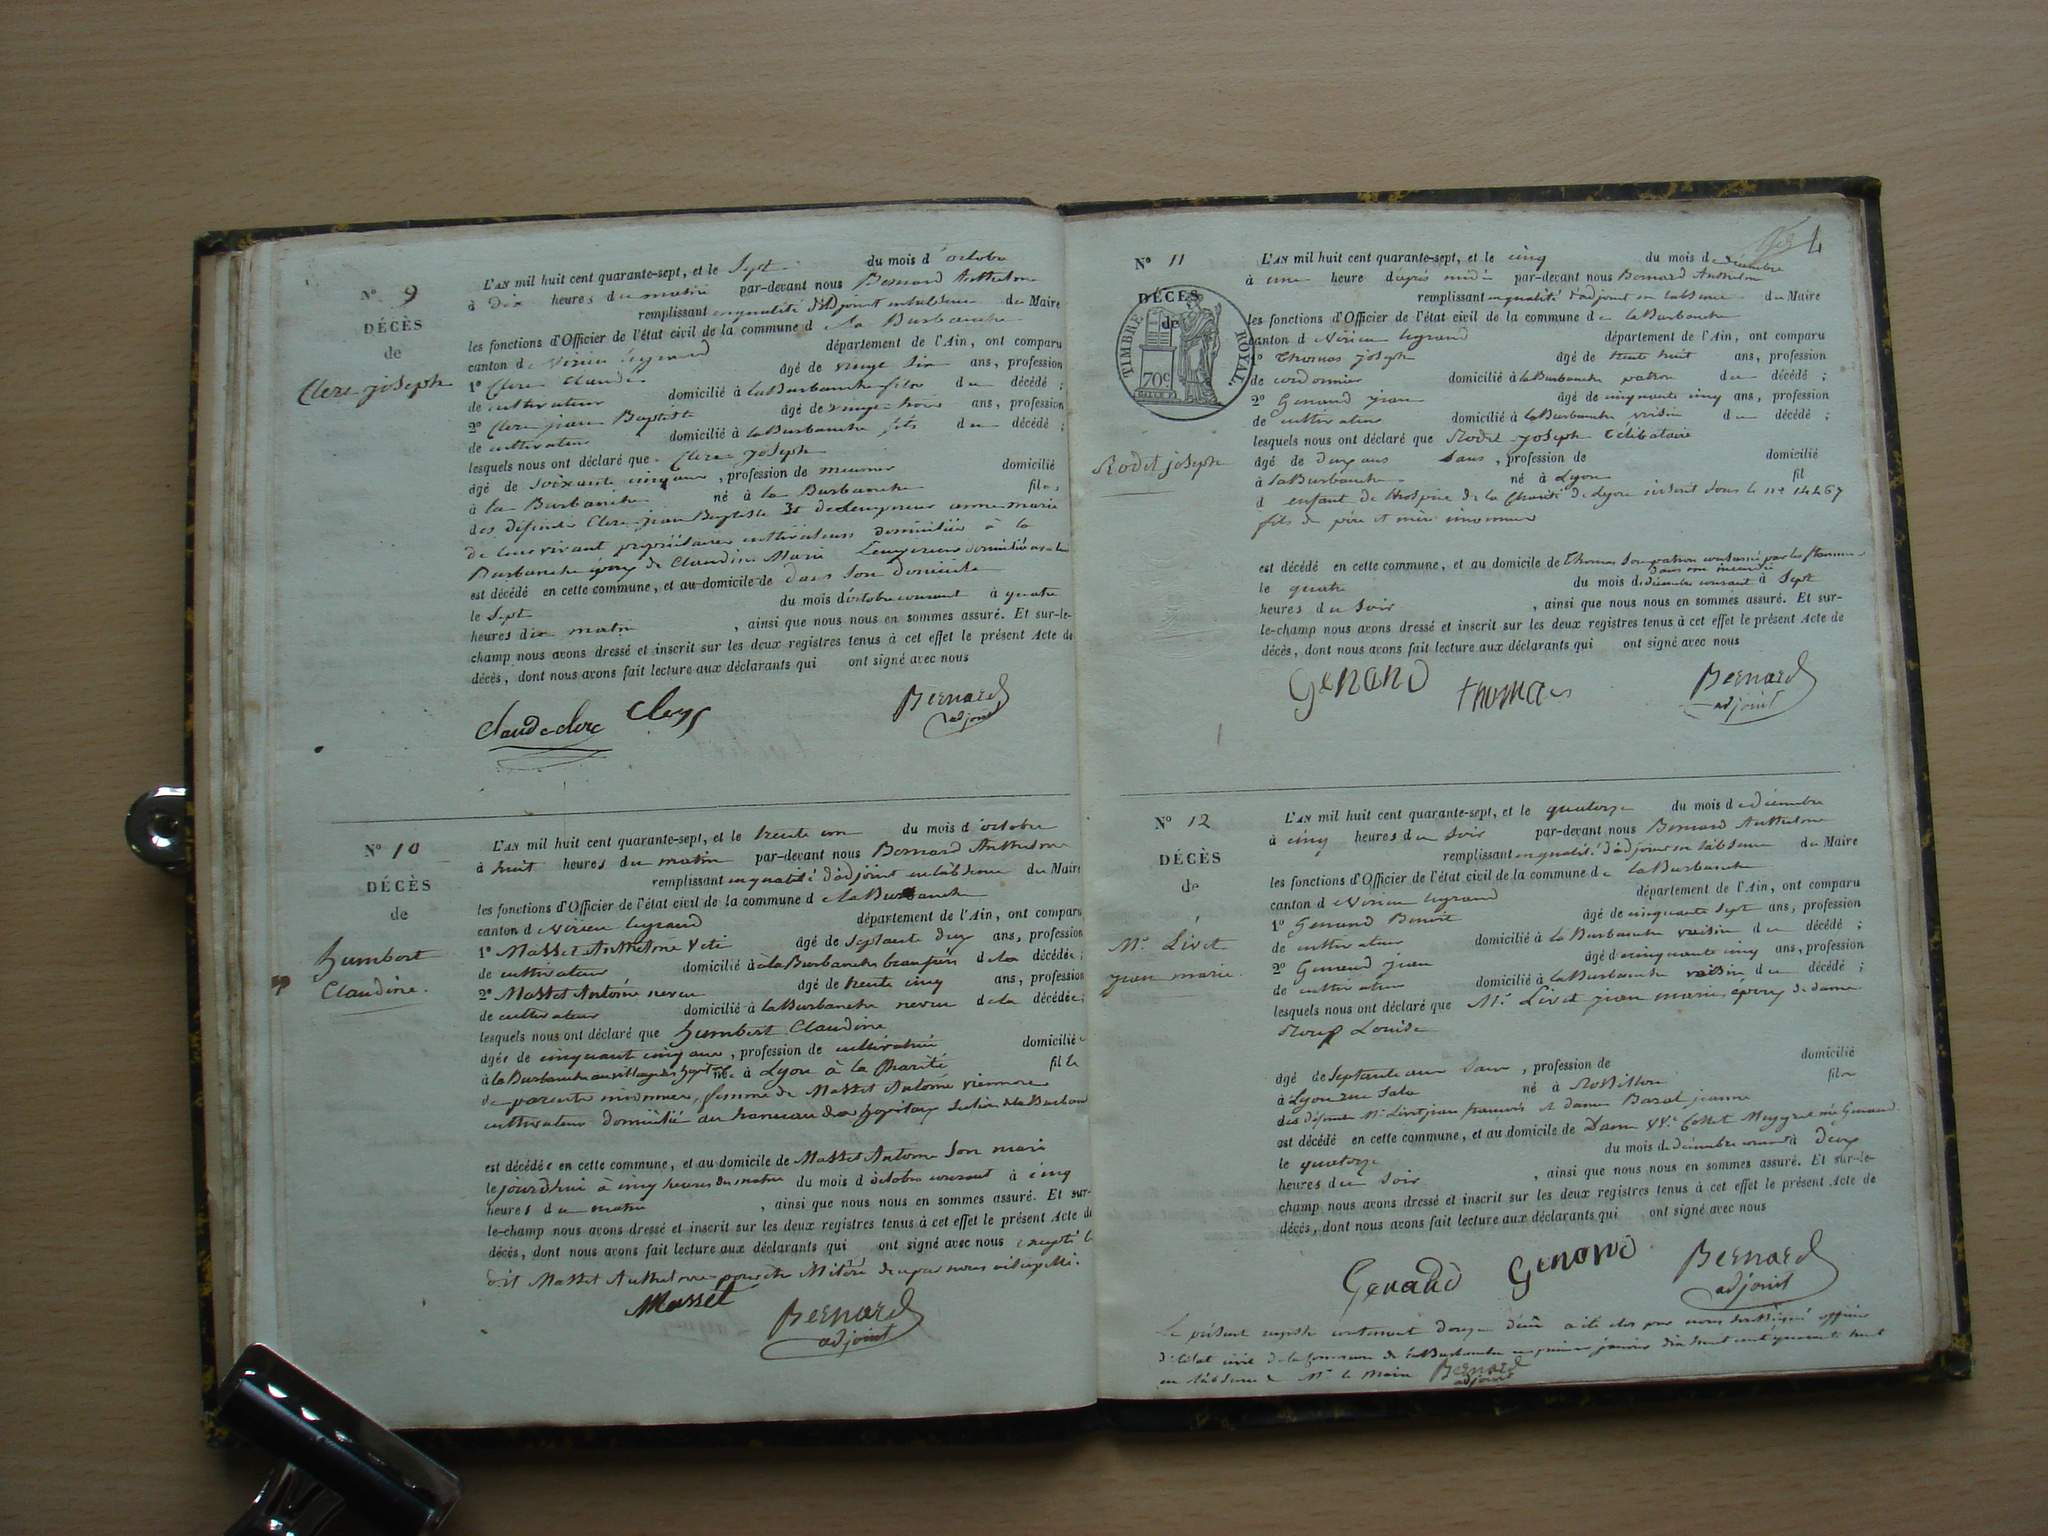 Nº 9
DÉCÈS
de
Clerc joseph
L'AN mil huit cent quarante-sept, et le Sept du mois d'octobre
à Dix heures du matin par-devant nous Bernard Anthelme
remplissant en qualité d'adjoint en labsence du Maire
les fonctions d'Officier de l'état civil de la commune de la Burbanche
canton de Virieu legrand département de l'Ain, ont comparu
1º Clerc Claude âgé de vingt six ans, profession
de cultivateur domicilié à la Burbanche fils du décédé ;
2º Clerc jean Baptiste âgé de vingt-trois ans, profession
de cultivateur domicilié à la Burbanche fils du décédé ;
lesquels nous ont déclaré que Clerc joseph
âgé de soixante cinq ans, profession de meunier domicilié
à la Burbanche né à la Burbanche fils
des défunts Clerc jean Baptiste Et de anne marie
de leur vivant propriétaires cultivateurs domiciliés à la
Burbanche époux de Claudine Marie domiciliée à la
est décédé en cette commune, et au domicile de dans son domicile
le Sept du mois d'octobre courant à quatre
heures du matin, ainsi que nous nous en sommes assuré. Et sur-le-
champ nous avons dressé et inscrit sur les deux registres tenus à cet effet le présent Acte de
décès, dont nous avons fait lecture aux déclarants qui ont signé avec nous
Claude clerc Clerc Bernard
adjoint
Nº 10
DÉCÈS
de
humbert
Claudine.
L'AN mil huit cent quarante-sept, et le trente un du mois d'octobre
à huit heures du matin par-devant nous Bernard Anthelme
remplissant en qualité d'adjoint en labsence du Maire
les fonctions d'Officier de l'état civil de la commune de la Burbanche
canton de Virieu legrand département de l'Ain, ont comparu
1º Masset Anthelme âgé de septante deux ans, profession
de cultivateur domicilié à la Burbanche beaufrère de la décédée ;
2º Masset Antoine neveu âgé de trente cinq ans, profession
de cultivateur domicilié à la Burbanche neveu de la décédée ;
lesquels nous ont déclaré que humbert Claudine
âgée de cinquante cinq ans, profession de cultivatrice domiciliée
à la Burbanche née à Lyon à la Charité fille
de parents innommés, femme de Masset Antoine
cultivateur domicilié au hameau des hopitaux de la Burbanche
est décédée en cette commune, et au domicile de Masset Antoine son mari
le jourdhui à cinq heures du matin du mois d'octobre courant à cinq
heures du matin, ainsi que nous nous en sommes assuré. Et sur-
le-champ nous avons dressé et inscrit sur les deux registres tenus à cet effet le présent Acte de
décès, dont nous avons fait lecture aux déclarants qui ont signé avec nous excepté le
dit Masset Anthelme de ce par nous
Masset Bernard
adjoint
4
Nº 11
DÉCÈS
de
TIMBRE ROYAL
70c
Rodet joseph
L'AN mil huit cent quarante-sept, et le cinq du mois de décembre
à une heure d'après midi par-devant nous Bernard Anthelme
remplissant en qualité d'adjoint en labsence du Maire
les fonctions d'Officier de l'état civil de la commune de la Burbanche
canton de Virieu legrand département de l'Ain, ont comparu
1º Thomas joseph âgé de trente huit ans, profession
de cordonnier domicilié à la Burbanche patron du décédé ;
2º Genand jean âgé de cinquante cinq ans, profession
de cultivateur domicilié à la Burbanche voisin du décédé ;
lesquels nous ont déclaré que Rodet joseph Célibataire
âgé de ans Sans, profession de domicilié
à la Burbanche né à Lyon fil
d enfant de lhospice de la Charité de Lyon inscrit sous le nº 14467
fils de père et mère innommés
est décédé en cette commune, et au domicile de Thomas son patron consumé par les flammes
dans une incendie
le quatre du mois de décembre courant à Sept
heures du Soir, ainsi que nous nous en sommes assuré. Et sur-
le-champ nous avons dressé et inscrit sur les deux registres tenus à cet effet le présent Acte de
décès, dont nous avons fait lecture aux déclarants qui ont signé avec nous
Genand thomas Bernard
adjoint
Nº 12
DÉCÈS
de
Mr. Livet
jean marie.
L'AN mil huit cent quarante-sept, et le quatorze du mois de décembre
à cinq heures du Soir par-devant nous Bernard Anthelme
remplissant en qualité d'adjoint en labsence du Maire
les fonctions d'Officier de l'état civil de la commune de la Burbanche
canton de Virieu legrand département de l'Ain, ont comparu
1º Genand Benoit âgé de cinquante sept ans, profession
de cultivateur domicilié à la Burbanche voisin du décédé ;
2º Genand jean âgé de cinquante cinq ans, profession
de cultivateur domicilié à la Burbanche voisin du décédé ;
lesquels nous ont déclaré que Mr. Livet jean marie époux de dame
Roux Louise
âgé de Septante ans, profession de domicilié
à Lyon rue Sala né à Rossillon fils
des défunts Mr Livet jean francois et dame jeanne
est décédé en cette commune, et au domicile de Dame Vve Collet née Genand
le quatorze du mois de décembre courant à deux
heures du Soir, ainsi que nous nous en sommes assuré. Et sur-le-
champ nous avons dressé et inscrit sur les deux registres tenus à cet effet le présent Acte de
décès, dont nous avons fait lecture aux déclarants qui ont signé avec nous
Genand Genand Bernard
adjoint
Le présent registre contenant douze décès a été clos par nous soussigné officier
d'état civil de la commune de la Burbanche le premier janvier dix huit cent quarante huit
en labsence de Mr le Maire Bernard
adjoint